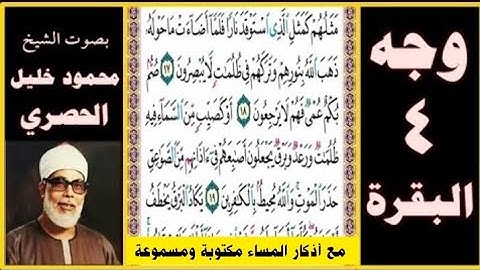 وجه
٤
البقرة
مَثَلُهُمْ كَمَثَلِ ٱلَّذِى ٱسْتَوْقَدَ نَارًا فَلَمَّآ أَضَآءَتْ مَا حَوْلَهُۥ
ذَهَبَ ٱللَّهُ بِنُورِهِمْ وَتَرَكَهُمْ فِى ظُلُمَٰتٍ لَّا يُبْصِرُونَ ١٧ صُمٌّۢ
بُكْمٌ عُمْىٌ فَهُمْ لَا يَرْجِعُونَ ١٨ أَوْ كَصَيِّبٍ مِّنَ ٱلسَّمَآءِ فِيهِ
ظُلُمَٰتٌ وَرَعْدٌ وَبَرْقٌ يَجْعَلُونَ أَصَٰبِعَهُمْ فِىٓ ءَاذَانِهِم مِّنَ ٱلصَّوَٰعِقِ
حَذَرَ ٱلْمَوْتِ وَٱللَّهُ مُحِيطٌۢ بِٱلْكَٰفِرِينَ ١٩ يَكَادُ ٱلْبَرْقُ يَخْطَفُ
مع أذكار المساء مكتوبة ومسموعة
بصوت الشيخ
محمود خليل
الحصري